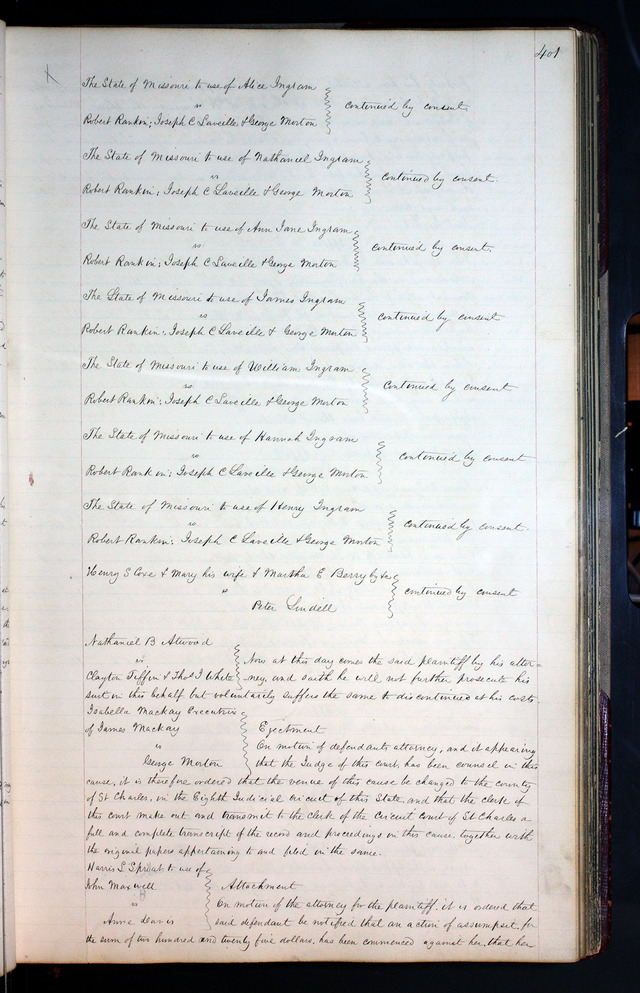 401
The State of Missouri to use of Alice Ingram
vs
continued by consent.
Robert Rankin; Joseph C Laveille & George Morton
The State of Missouri to use of Nathaniel Ingram
vs
continued by consent.
Robert Rankin; Joseph C Laveille & George Morton
The State of Missouri to use of Ann Jane Ingram
vs
continued by consent.
Robert Rankin; Joseph C Laveille & George Morton
The State of Missouri to use of James Ingram
vs
continued by consent
Robert Rankin; Joseph C Laveille & George Morton
The State of Missouri to use of William Ingram
vs
continued by consent
Robert Rankin; Joseph C Laveille & George Morton
The State of Missouri to use of Hannah Ingram
vs
continued by consent
Robert Rankin; Joseph C Laveille & George Morton
The State of Missouri to use of Henry Ingram
vs
continued by consent.
Robert Rankin; Joseph C Laveille & George Morton
Henry S Coxe & Mary his wife & Martha E Berry by &c
vs
continued by consent
Peter Lindell
Nathaniel B Atwood
vs
Now at this day comes the said plaintiff by his attor=
Clayton Tiffin & Thos J White
ney, and saith he will not further prosecute his
suit in this behalf but voluntarily suffers the same to discontinued at his costs.
Isabella Mackay Executrix
of James Mackay
Ejectment
vs
On motion of defendants attorney, and it appearing
George Morton
that the Judge of this court, has been counsel in this
cause, it is therefore ordered that the venue of this cause be changed to the county
of St Charles, in the Eighth Judicial circuit of this State, and that the clerk of
this court make out and transmit to the clerk of the Circuit Court of St Charles a
full and complete transcript of the record and proceedings in this cause. together with
the original papers appertaining to and filed in the same.
Harris L Sproat to use of
John Maxwell
Attachment
vs
On motion of the attorney for the plaintiff, it is ordered that
Anne Davis
said defendant be notified that an action of assumpsit, for
the sum of two hundred and twenty five dollars, has been commenced against her, that her